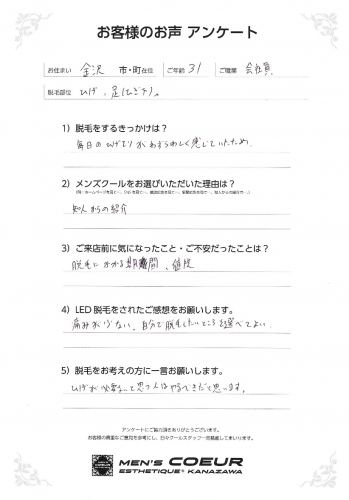 お客様のお声 アンケート
お住まい 金沢 市・町在住 ご年齢 31 ご職業 会社員
脱毛部位 ひげ、足(ひざ下)。
1）脱毛をするきっかけは？
毎日のひげそりがわずらわしく感じていたため。
2）メンズクールをお選びいただいた理由は？
知人からの紹介
3）ご来店前に気になったこと・ご不安だったことは？
脱毛にかかる期間、値段
4）LED脱毛をされたご感想をお願いします。
痛みが少ない、自分で脱毛したいところを選べてよい
5）脱毛をお考えの方に一言お願いします。
ひげが必要ないって思う人はやるべきだと思います。
アンケートにご協力頂きありがとうございます。
お客様の貴重なご意見を参考にし、日々クールスタッフ一同精進してまいります。
MEN'S COEUR
ESTHETIQUE KANAZAWA